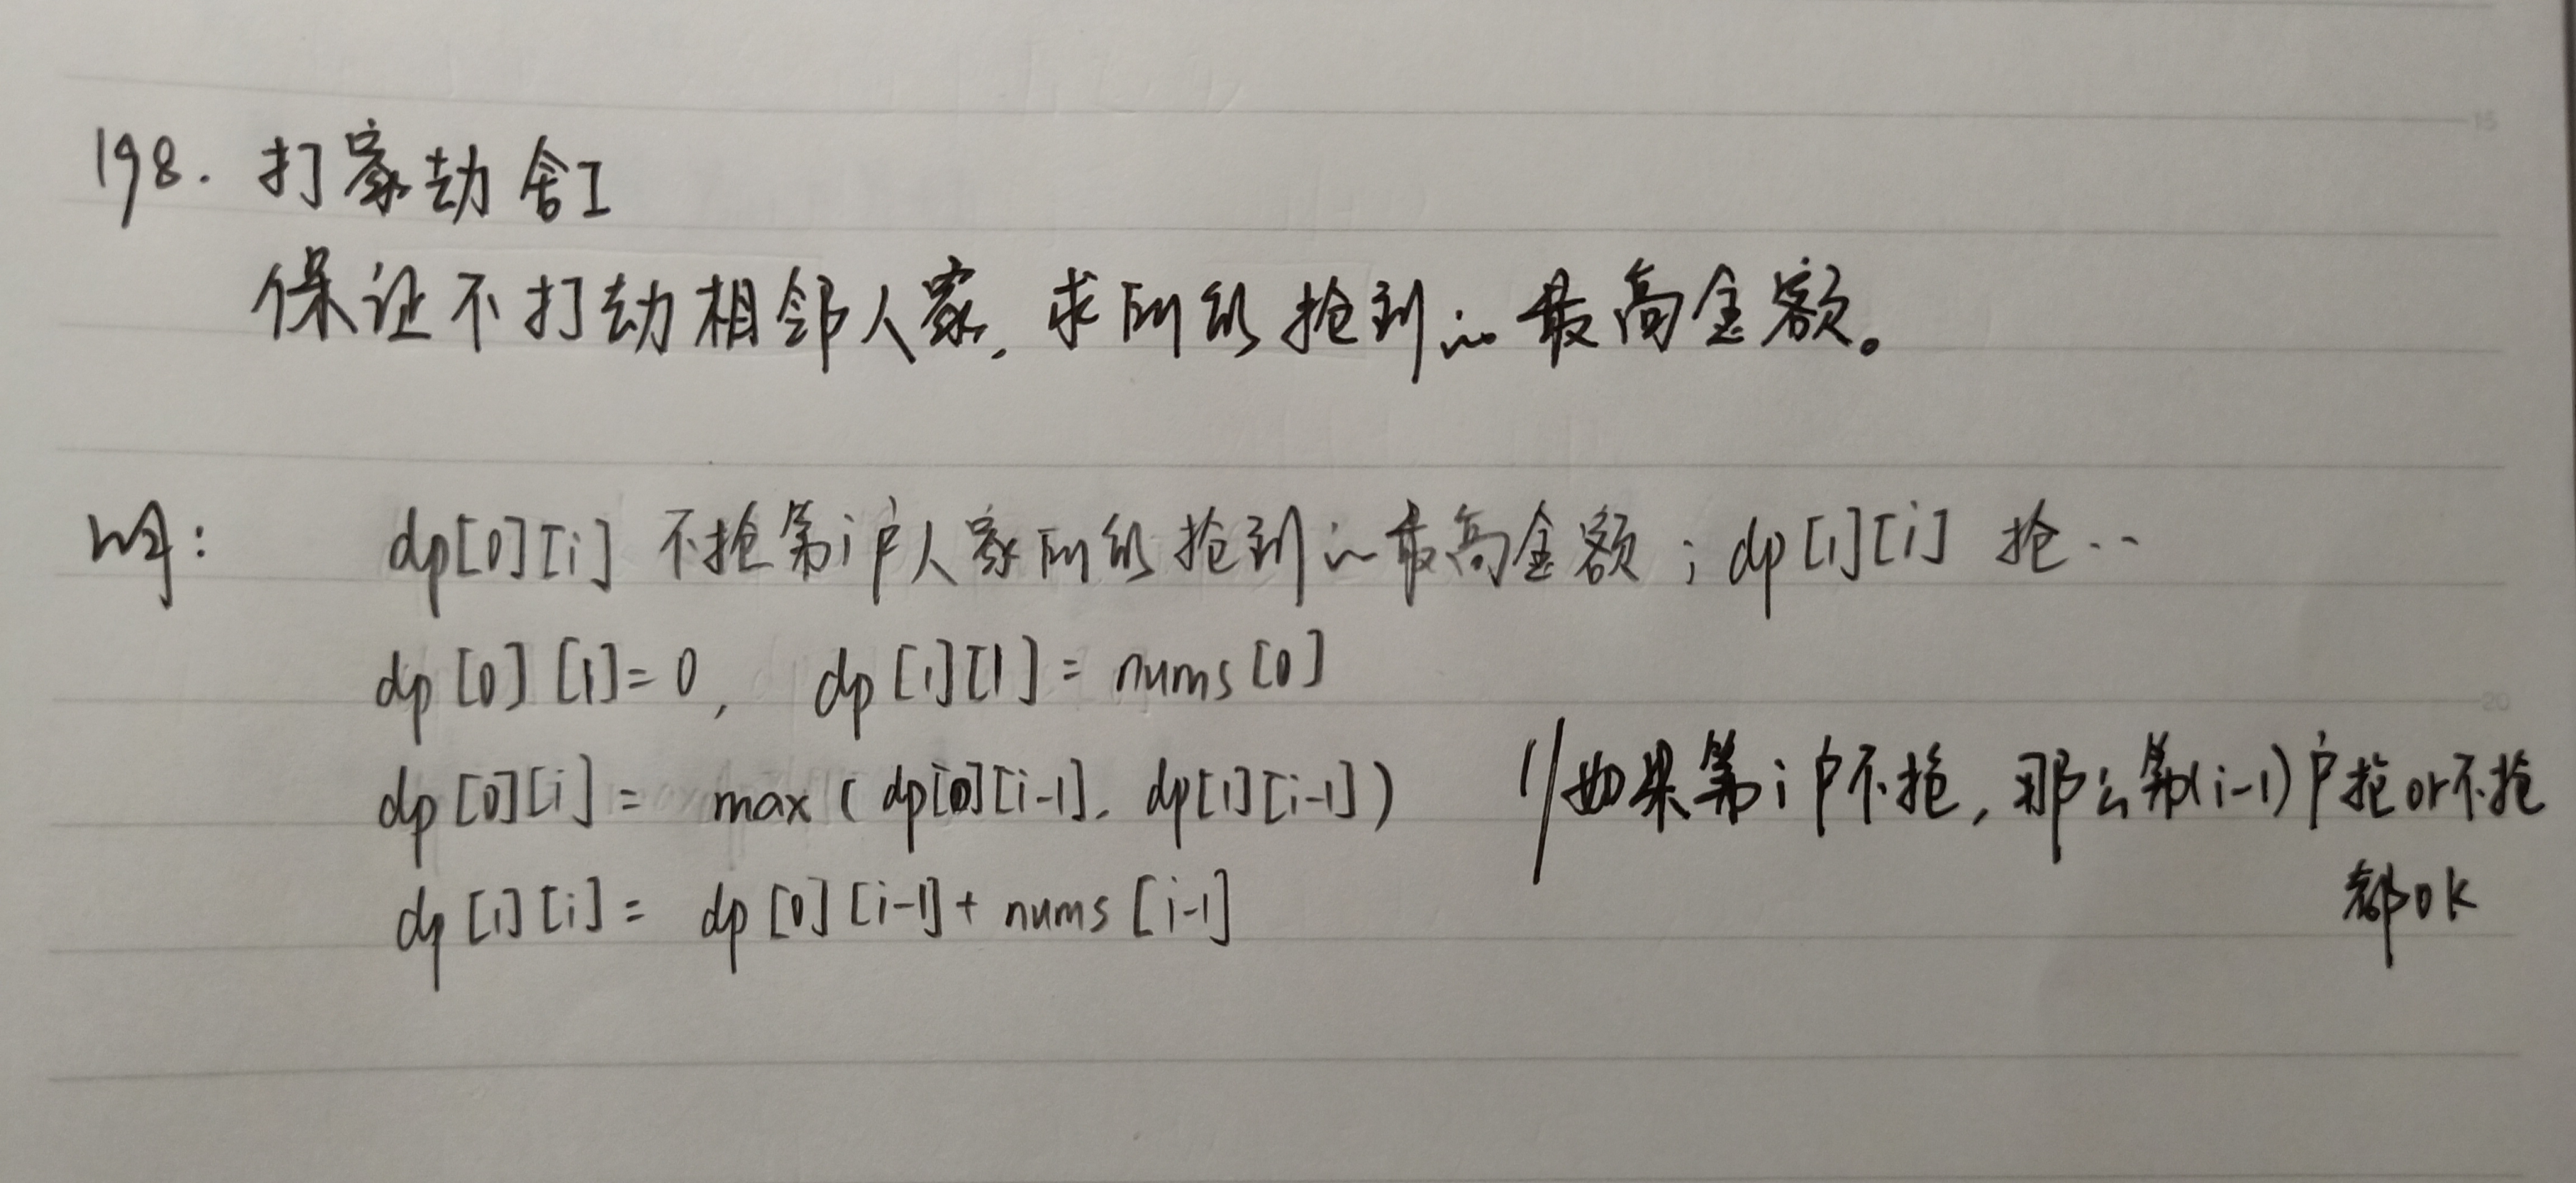 198. 打家劫舍I
保证不打劫相邻人家,求所能抢到的最高金额。
dp[0][i] 不抢第i户人家所能抢到的最高金额;dp[1][i] 抢..
dp[0][1]=0, dp[1][1]=nums[0]
dp[0][i]= max(dp[0][i-1], dp[1][i-1]) //如果第i户不抢,那么第(i-1)户抢or不抢
都OK
dp[1][i]= dp[0][i-1]+nums[i-1]
15
20